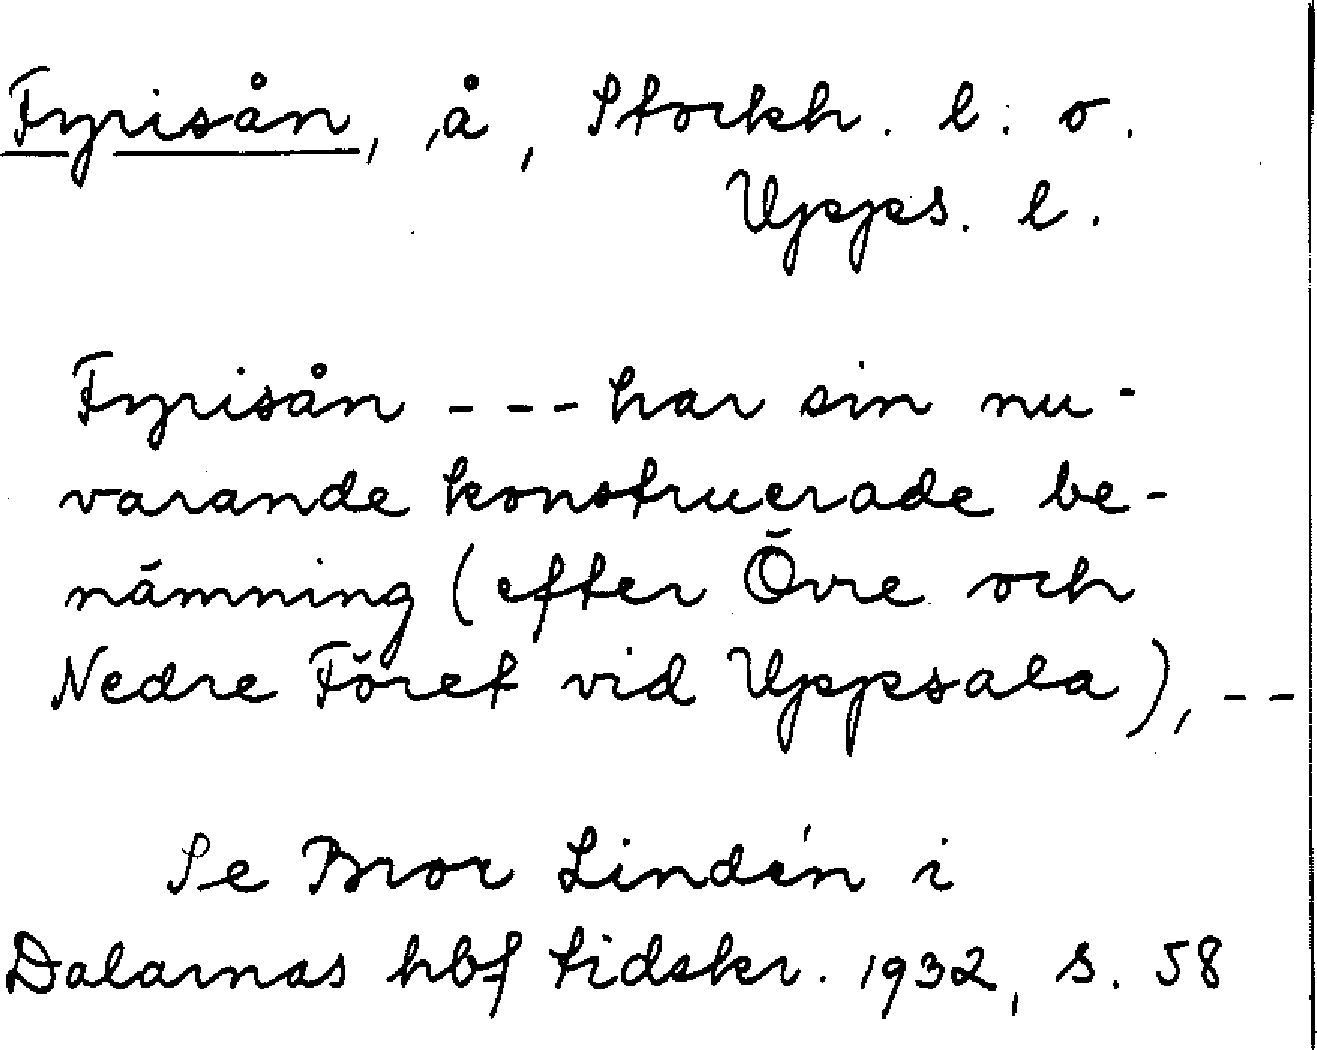 Fyrisån, å, Stockh. l. o.
Upps. l.
Fyrisån --- har sin nu-
varande konstruerade be-
nämning (efter Övre och
Nedre Föret vid Uppsala), --
Se Bror Lindén i
Dalarnas hbf tidskr. 1932, s. 58